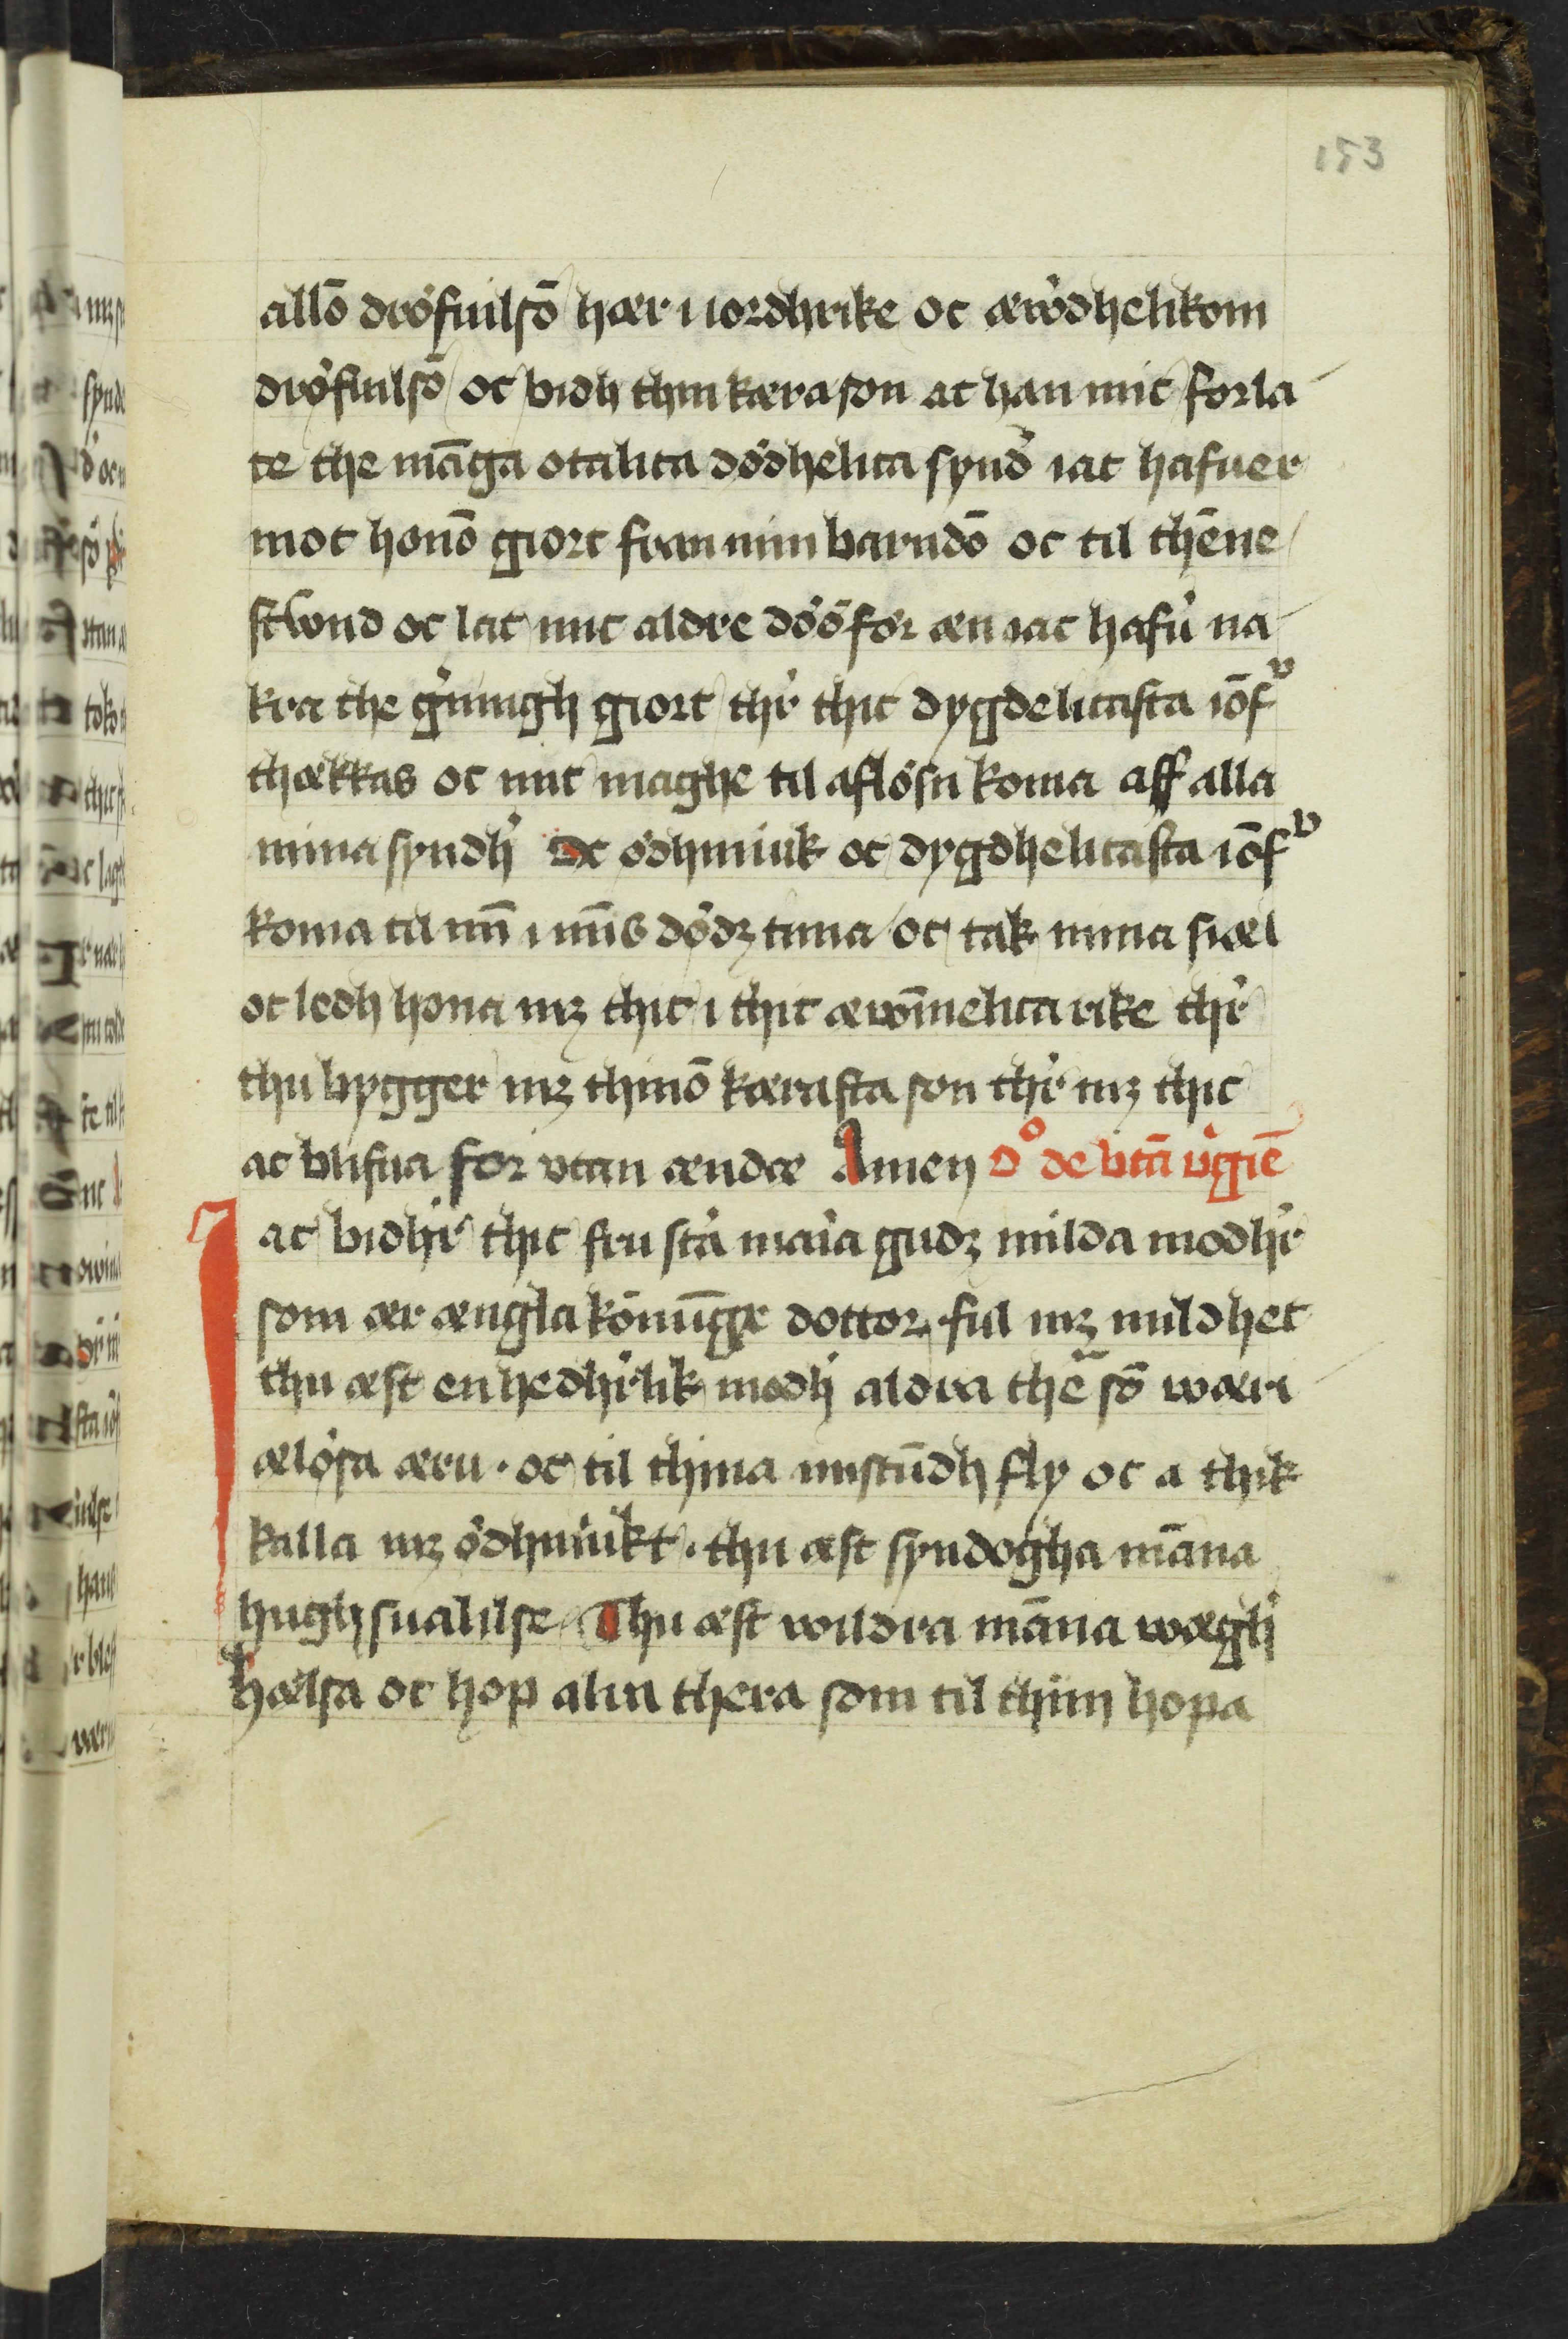 153
allō dröfuilsō hær i iordhrike oc æwördhelikom
dröfuilsō oc bidh thin kæra son at han mic forla
te the mā̄ga otalica dödhelica synd̓ iac hafuer
mot honō giort fran min barndō oc til thēne
stwnd oc lat mic aldre döö för æn iac hafu̓ na
kra the g̓ningh giort th̓r thic dygdelicasta iōfᵛ
thækkas oc mic maghe til aflösn koma aff alla
mina syndh̓ Oc ödhmiuk oc dygdhelicasta iōfᵛ
koma til mī̄ i mī̄s dödz tima oc tak mina siæl
oc ledh hona mz thic i thit æwī̄nelica rike th̓r
thu bygger mz thinō kærasta son th̓r mz thic
at blifua for vtan ændæ Amen Oº de btā v̓gīe
Iac bidh̓r thic fru sta̓ mar̓ia gudz milda modh̓r
som ær ængla konū̄gx dottor. ful mz mildhet
thu æst en hedh̓rlik modh̓ aldra thē sō wæri
ælösa æru. oc til thina miscūdh fly oc a thik
kalla mz ödhmiukt. thu æst syndogha māna
hughsualilse Thu æst wildra māna wægh̓
hælsa oc hop alra thera som til thim hopa